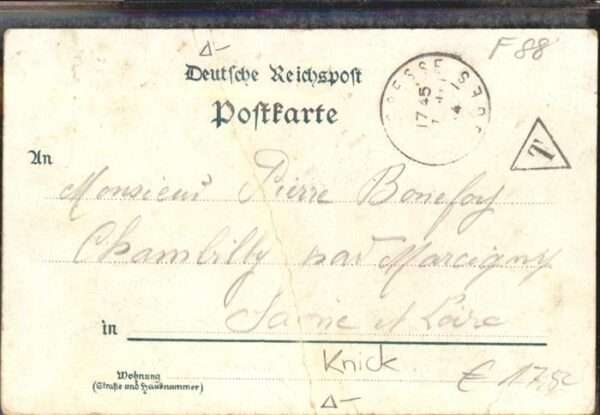 F 88
Deutsche Reichspost
Postkarte
17 45
T
An
Monsieur Pierre Bonefoy
Chambilly par Marcigny
in
Saône et Loire
Knick
Wohnung
(Straße und Hausnummer)
€ 17,50